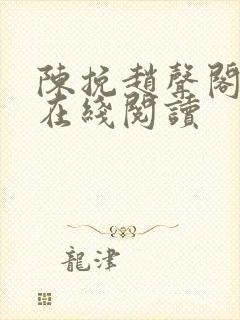 陳挽趙聲閣
在綫閱讀
龍津